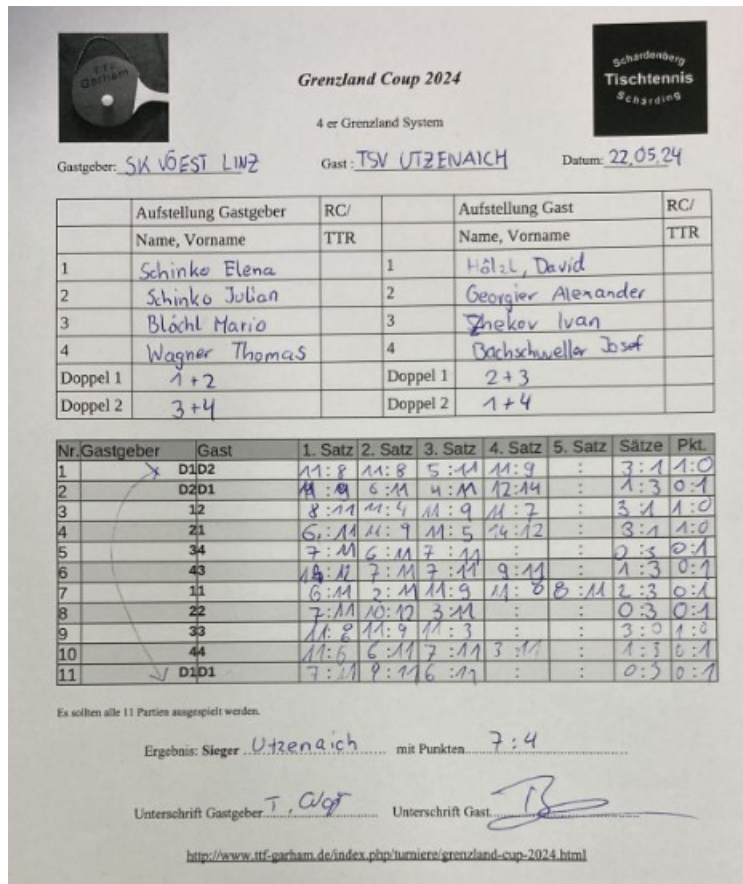 TTF
Garham
Schardenberg
Tischtennis
Schärding
Grenzland Coup 2024
4 er Grenzland System
Gastgeber: SK VÖEST LINZ Gast : TSV UTZENAICH Datum: 22.05.24
Aufstellung Gastgeber RC/ Aufstellung Gast RC/
Name, Vorname TTR Name, Vorname TTR
1 Schinko Elena 1 Hölzl, David
2 Schinko Julian 2 Georgier Alexander
3 Blöchl Mario 3 Zhekov Ivan
4 Wagner Thomas 4 Bachschweller Josef
Doppel 1 1+2 Doppel 1 2+3
Doppel 2 3+4 Doppel 2 1+4
Nr. Gastgeber Gast 1. Satz 2. Satz 3. Satz 4. Satz 5. Satz Sätze Pkt.
1 D1 D2 11:8 11:8 5:11 11:9 : 3:1 1:0
2 D2 D1 6:11 4:11 12:14 : 1:3 0:1
3 1 2 8:11 11:4 11:9 11:7 : 3:1 1:0
4 2 1 6:11 11:9 11:5 14:12 : 3:1 1:0
5 3 4 7:11 6:11 7:11 : : 0:3 0:1
6 4 3 7:11 7:11 9:11 : 1:3 0:1
7 1 1 6:11 2:11 11:9 11:8 8:11 2:3 0:1
8 2 2 7:11 10:12 3:11 : : 0:3 0:1
9 3 3 11:8 11:9 11:3 : : 3:0 1:0
10 4 4 11:6 6:11 7:11 3:11 : 1:3 0:1
11 D1 D1 7:11 9:11 6:11 : : 0:3 0:1
Es sollten alle 11 Partien ausgespielt werden.
Ergebnis: Sieger Utzenaich mit Punkten 7:4
Unterschrift Gastgeber T. Unterschrift Gast
http://www.ttf-garham.de/index.php/turniere/grenzland-cup-2024.html